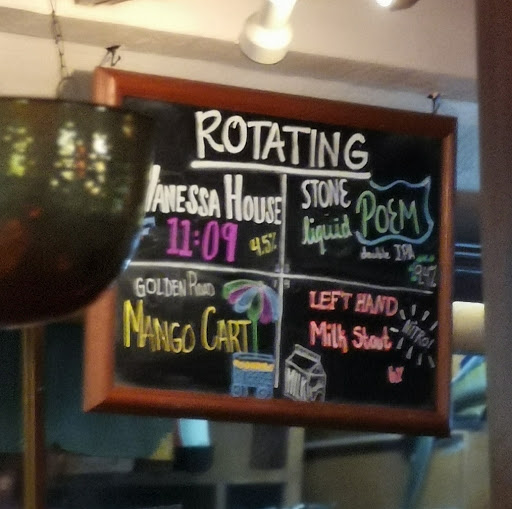 ROTATING
VANESSA HOUSE
11:09
4.5%
STONE
liquid POEM
double IPA
GOLDEN ROAD
MANGO CART
LEFT HAND
Milk Stout
NITRO!
MILK